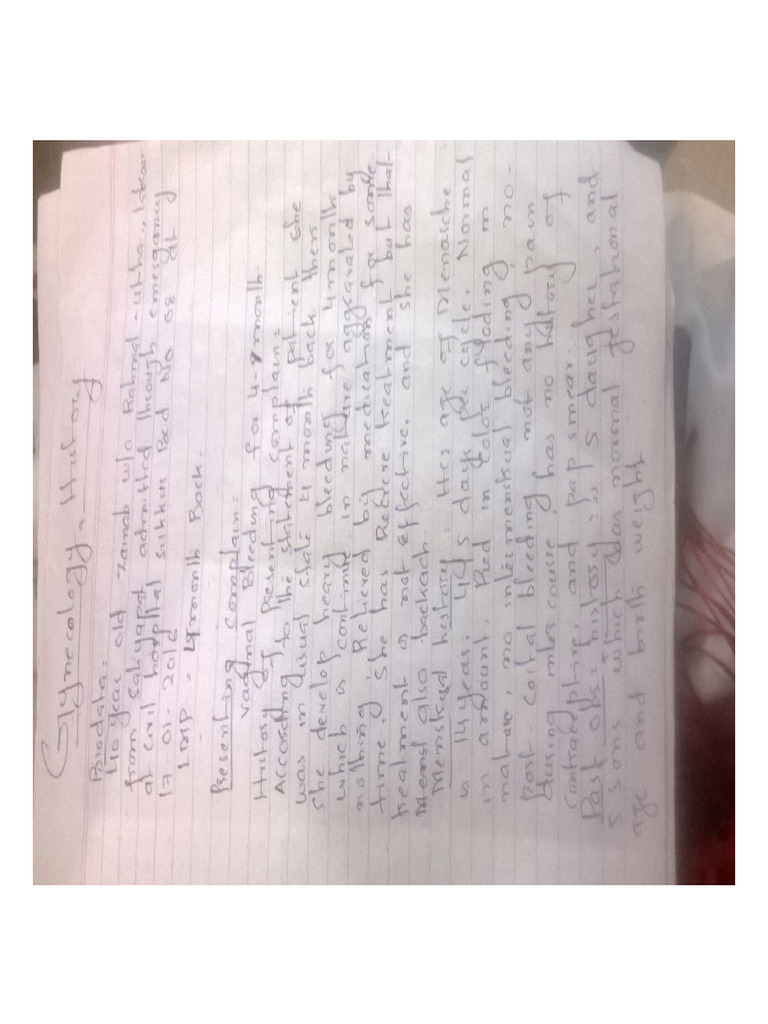 Gynecology. History
Biodata:
40 years old Zainab w/o Rahmat-ullha,
from admitted through emergency
at civil hospital sukkur Bed No 08 at
17-01-2016
LMP = 4 month Back.
Presenting complain:
vaginal Bleeding for 4 month.
History of Presenting complain:
According to the statement of patient she
was in usual state 4 month back then
she develop heavy bleeding for 4 month
which is continue in nature aggravated by
nothing, Relieved by medication for some
time, she has Recieve treatment but that
treatment is not effective. and she has
also backach.
Menstrual history: Her age of Menarche
is 14 years. 4/45 days per cycle. Normal
in amount, Red in color, flooding in
nature, no intermenstrual bleeding no
Post-coital bleeding not any pain
During intercourse, has no history of
contraceptive, and pap smear.
Past obs: history: 5 daugher, and
5 sons which was normal gestational
age and birth weight